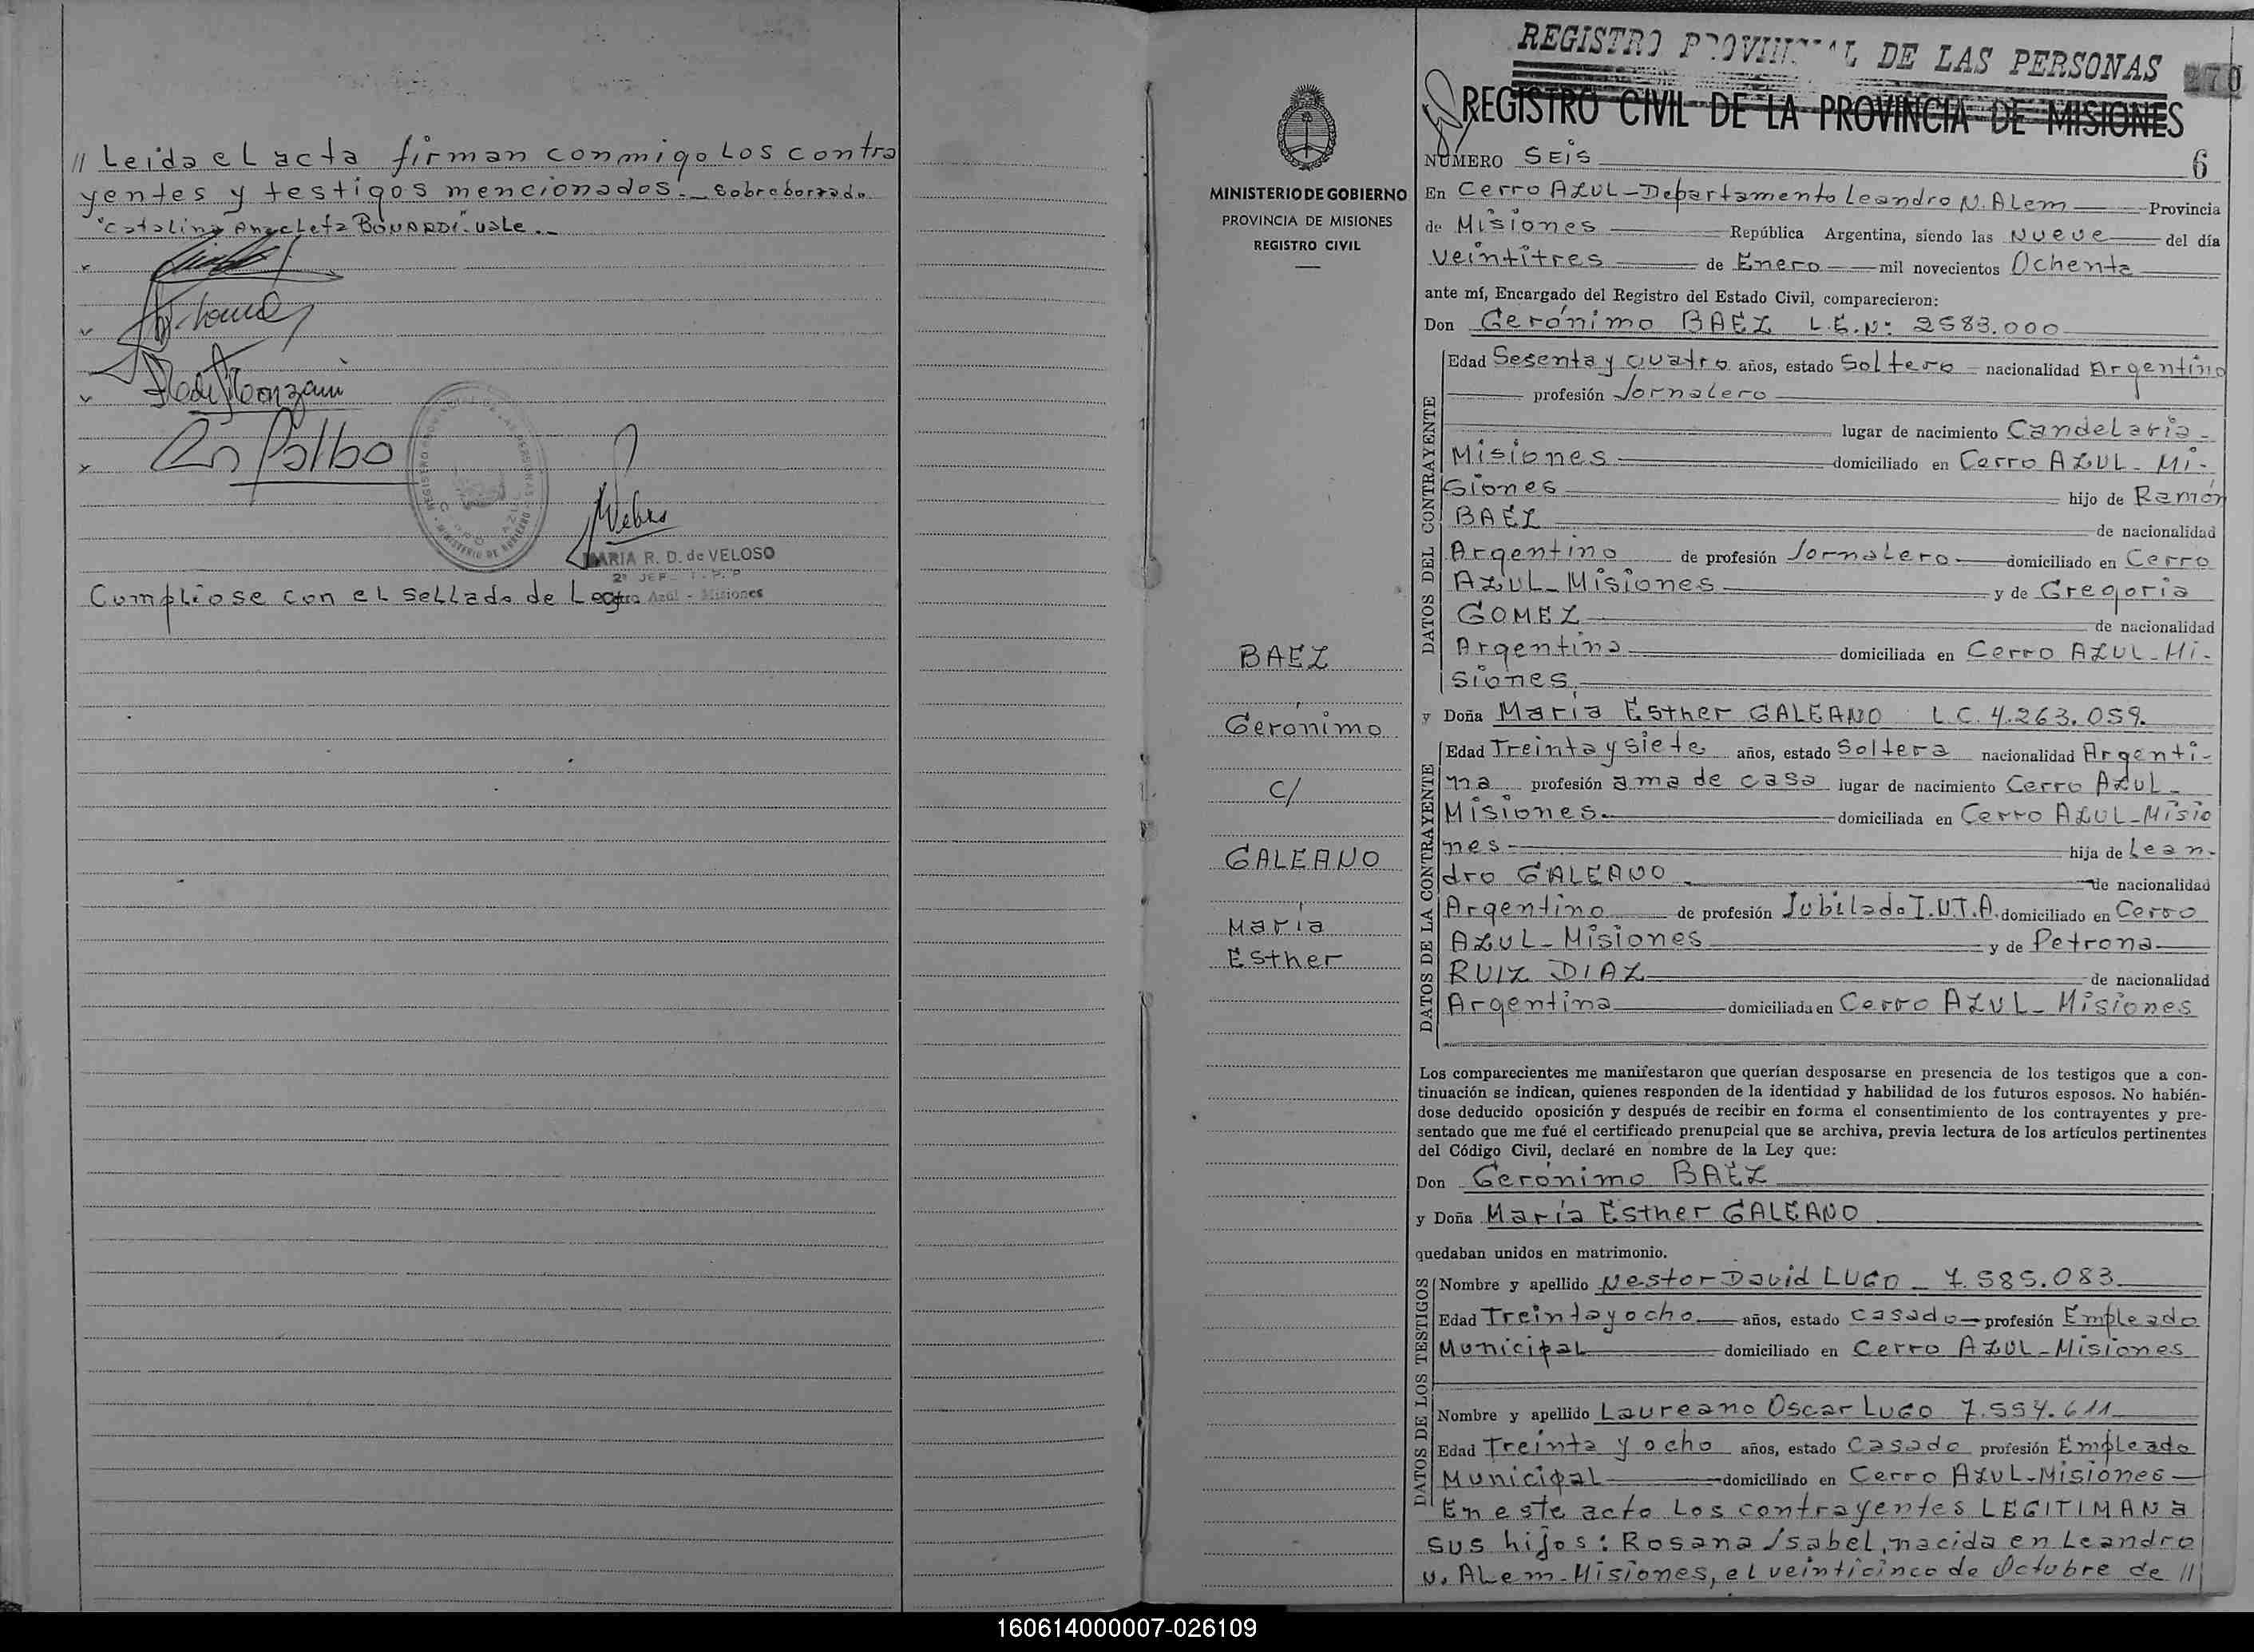 // Leida el acta firman conmigo los contra
yentes y testigos mencionados._ Sobreborrado
"Catalina Anacleta BONARDI". vale._
REGISTRO PROVINCIAL DE LAS PERSONAS
MINISTERIO DE GOBIERNO
MARIA R. D. de VELOSO
Cumpliose con el sellado de Ley
Cerro Azul - Misiones
MINISTERIO DE GOBIERNO
PROVINCIA DE MISIONES
REGISTRO CIVIL
BAEZ
Gerónimo
c/
GALEANO
María
Esther
REGISTRO PROVINCIAL DE LAS PERSONAS
270
REGISTRO CIVIL DE LA PROVINCIA DE MISIONES
NÚMERO SEIS 6
En Cerro AZUL - Departamento Leandro N. ALem Provincia
de Misiones República Argentina, siendo las Nueve del día
veintitres de Enero mil novecientos Ochenta
ante mí, Encargado del Registro del Estado Civil, comparecieron:
Don Gerónimo BAEZ L.E.N: 2583.000
DATOS DEL CONTRAYENTE
Edad Sesenta y cuatro años, estado Soltero nacionalidad Argentino
profesión Jornalero
lugar de nacimiento Candelaria -
Misiones domiciliado en Cerro AZUL - Mi-
siones hijo de Ramón
BAEZ de nacionalidad
Argentino de profesión Jornalero domiciliado en Cerro
AZUL - Misiones y de Gregoria
GOMEZ de nacionalidad
Argentina domiciliada en Cerro AZUL - Mi-
siones.
y Doña María Esther GALEANO L.C. 4.263.059.
DATOS DE LA CONTRAYENTE
Edad Treinta y siete años, estado Soltera nacionalidad Argenti-
na profesión ama de casa lugar de nacimiento Cerro AZUL -
Misiones. domiciliada en Cerro AZUL - Misio
nes - hija de Lean-
dro GALEANO de nacionalidad
Argentino de profesión Jubilado I.N.T.A. domiciliado en Cerro
AZUL - Misiones y de Petrona
RUIZ DIAZ de nacionalidad
Argentina domiciliada en Cerro AZUL - Misiones
Los comparecientes me manifestaron que querían desposarse en presencia de los testigos que a con-
tinuación se indican, quienes responden de la identidad y habilidad de los futuros esposos. No habién-
dose deducido oposición y después de recibir en forma el consentimiento de los contrayentes y pre-
sentado que me fué el certificado prenupcial que se archiva, previa lectura de los artículos pertinentes
del Código Civil, declaré en nombre de la Ley que:
Don Gerónimo BAEZ
y Doña María Esther GALEANO
quedaban unidos en matrimonio.
DATOS DE LOS TESTIGOS
Nombre y apellido Nestor David LUGO - 7.585.083
Edad Treinta y ocho años, estado casado profesión Empleado
Municipal domiciliado en Cerro AZUL - Misiones
Nombre y apellido Laureano Oscar LUGO 7.554.611
Edad Treinta y ocho años, estado Casado profesión Empleado
Municipal domiciliado en Cerro AZUL - Misiones
En este acto los contrayentes LEGITIMAN a
sus hijos: Rosana Isabel, nacida en Leandro
N. ALem - Misiones, el veinticinco de Octubre de //
160614000007-026109